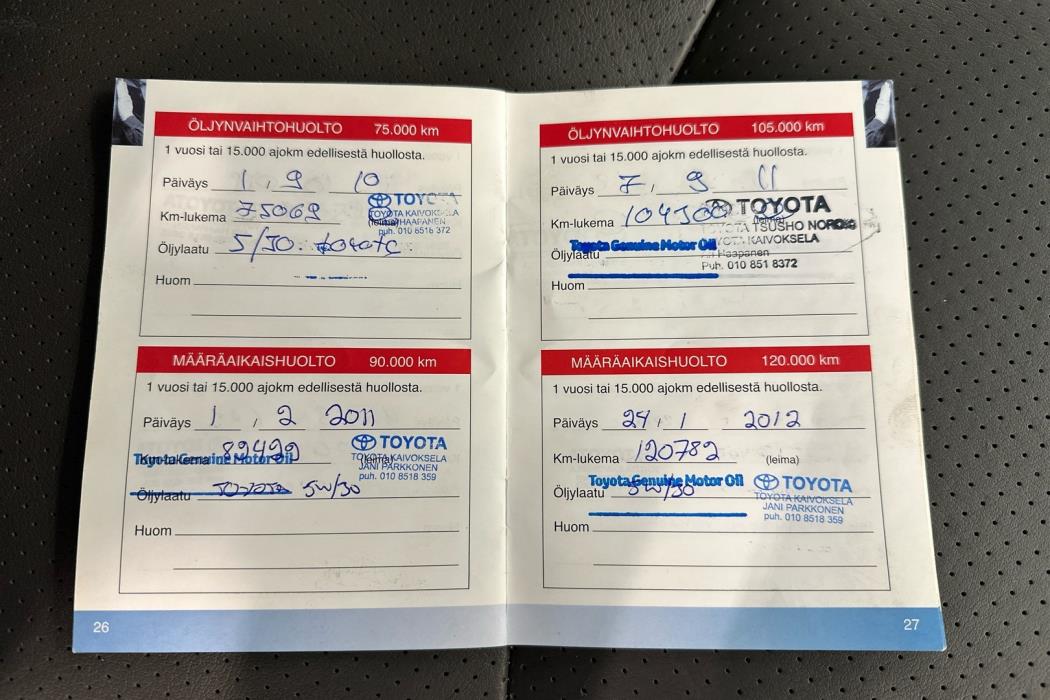 ÖLJYNVAIHTOHUOLTO 75.000 km
1 vuosi tai 15.000 ajokm edellisestä huollosta.
Päiväys 1 , 9 10
Km-lukema 75069
TOYOTA
TOYOTA KAIVOKSELA
puh. 010 8518 372
Öljylaatu 5/30
Huom
MÄÄRÄAIKAISHUOLTO 90.000 km
1 vuosi tai 15.000 ajokm edellisestä huollosta.
Päiväys 1 , 2 2011
Km-lukema 82492
Toyota Genuine Motor Oil
TOYOTA
TOYOTA KAIVOKSELA
JANI PARKKONEN
puh. 010 8518 359
Öljylaatu 5W/30
Huom
26
ÖLJYNVAIHTOHUOLTO 105.000 km
1 vuosi tai 15.000 ajokm edellisestä huollosta.
Päiväys 7 , 9 11
Km-lukema
TOYOTA
TOYOTA TSUSHO
TOYOTA KAIVOKSELA
Haapanen
Puh. 010 851 8372
Toyota Genuine Motor Oil
Öljylaatu
Huom
MÄÄRÄAIKAISHUOLTO 120.000 km
1 vuosi tai 15.000 ajokm edellisestä huollosta.
Päiväys 24 , 1 2012
Km-lukema 120782 (leima)
Toyota Genuine Motor Oil
Öljylaatu 5W/30
TOYOTA
TOYOTA KAIVOKSELA
JANI PARKKONEN
puh. 010 8518 359
Huom
27